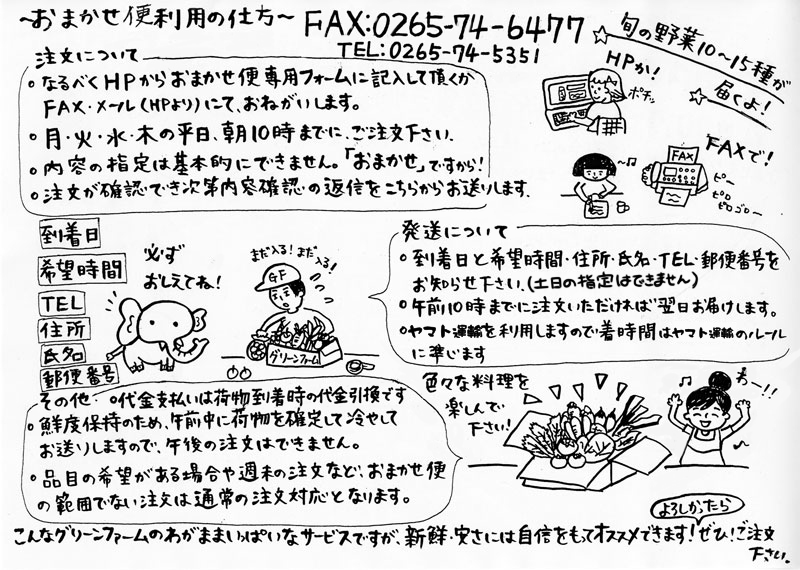 ～おまかせ便利用の仕方～
FAX:0265-74-6477
TEL:0265-74-5351
☆旬の野菜10～15種が
☆届くよ！
注文について
・なるべくHPからおまかせ便専用フォームに記入して頂くか
FAX・メール(HPより)にて、おねがいします。
・月・火・水・木の平日、朝10時までに、ご注文下さい。
・内容の指定は基本的にできません。「おまかせ」ですから！
・注文が確認でき次第内容確認の返信をこちらからお送りします。
HPか！
ポチッ
FAXで！
FAX
ピー
ピロ
ピロゴロー
到着日
希望時間
TEL
住所
氏名
郵便番号
必ず
おしえてね！
まだ入る！まだ
入る！
GF
グリーンファーム
発送について
・到着日と希望時間・住所・氏名・TEL・郵便番号を
お知らせ下さい。(土日の指定はできません)
・午前10時までに注文いただければ翌日お届けします。
・ヤマト運輸を利用しますので着時間はヤマト運輸のルール
に準じます
その他・代金支払いは荷物到着時の代金引換です
・鮮度保持のため、午前中に荷物を確定して冷やして
お送りしますので、午後の注文はできません。
・品目の希望がある場合や週末の注文など、おまかせ便
の範囲でない注文は通常の注文対応となります。
色々な料理を
楽しんで
下さい！
わ～!!
よろしかったら
こんなグリーンファームのわがままいっぱいなサービスですが、新鮮・安さには自信をもってオススメできます！ぜひ！ご注文
下さい。